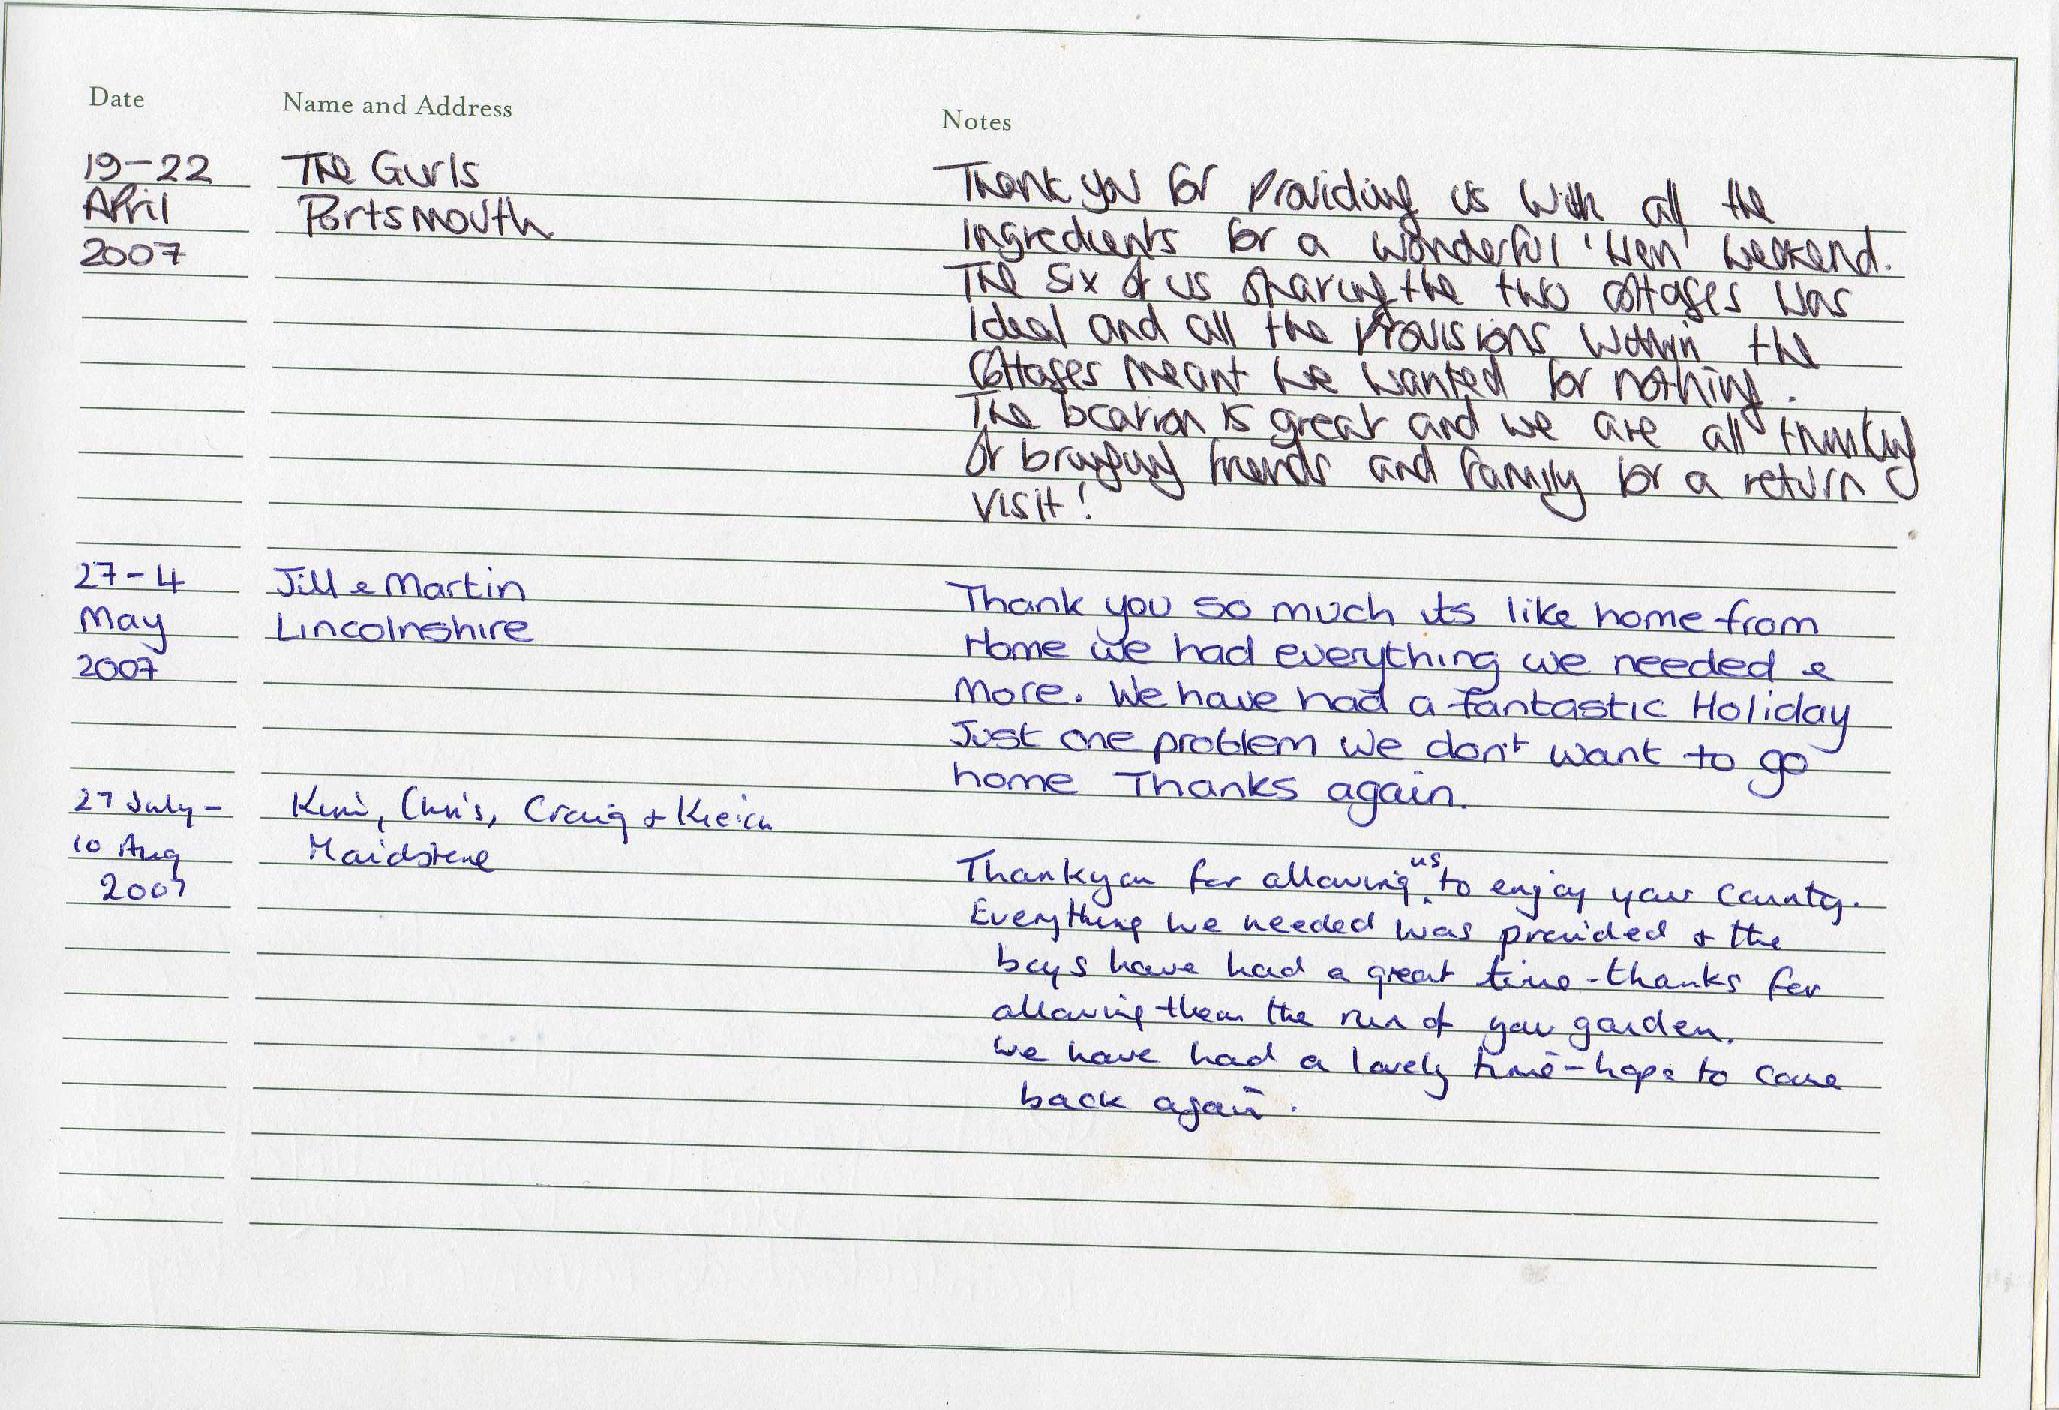 Date Name and Address Notes
19-22 The Gurls
April Portsmouth
2007
Thank you for providing us with all the
ingredients for a wonderful 'Hen' weekend.
The six of us sharing the two cottages was
ideal and all the provisions within the
cottages meant we wanted for nothing.
The location is great and we are all thinking
of bringing friends and family for a return
visit!
27-4 Jill & Martin
May Lincolnshire
2007
Thank you so much its like home from
Home we had everything we needed &
more. We have had a fantastic Holiday
Just one problem we don't want to go
home Thanks again.
27 July - Kim, Chris, Craig +
10 Aug Maidstone
2007
Thankyou for allowing us to enjoy your county.
Everything we needed was provided + the
boys have had a great time - thanks for
allowing them the run of your garden.
We have had a lovely time - hope to come
back again.